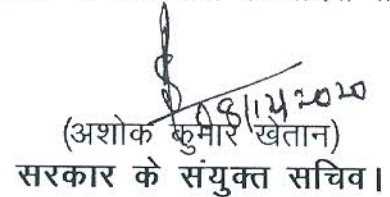 08/12/2020
(अशोक कुमार खेतान)
सरकार के संयुक्त सचिव।